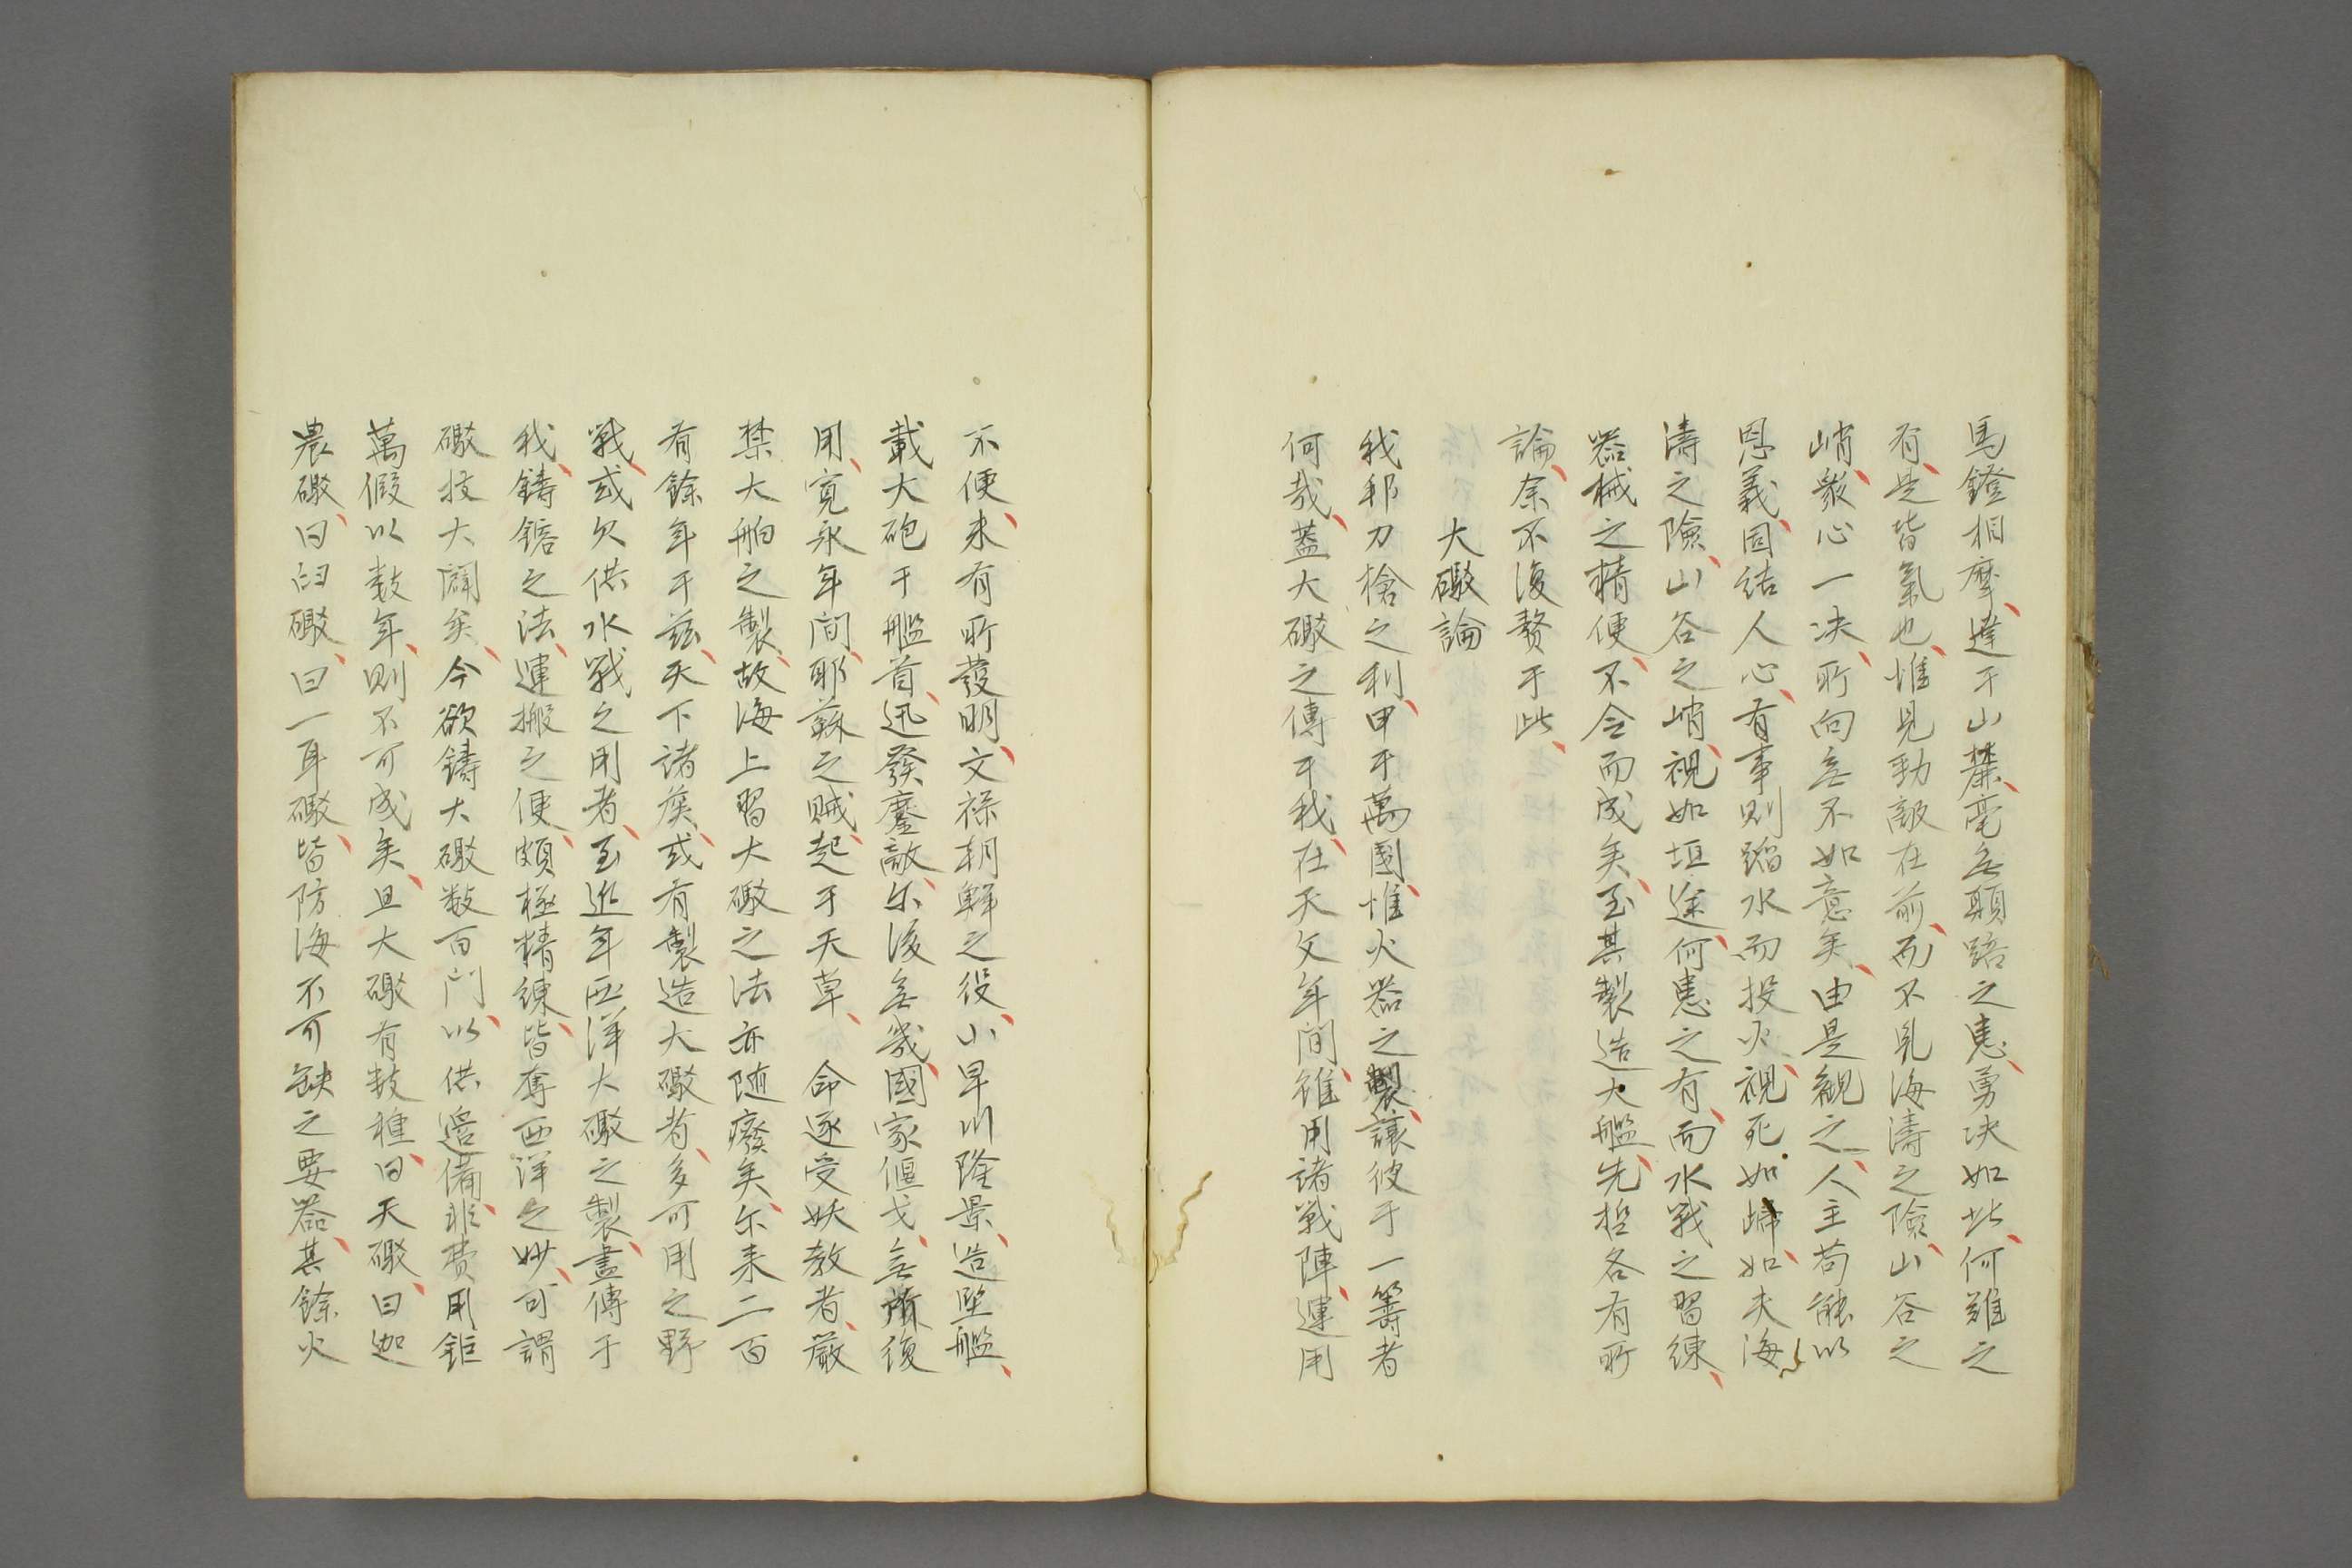 馬鐙相摩、達于山麓、毫無顛踣之患、勇决如此、何難之
有、是皆氣也、惟見勁敵在前、而不見海濤之險、山谷之
峭、衆心一决、所向無不如意矣、由是觀之、人主苟能以
恩義固結人心、有事則蹈水而投火、視死如歸、如夫海
濤之險、山谷之峭、視如坦途、何患之有、而水戰之習練、
器械之精便、不令而成矣、至其製造大艦、先哲各有所
論、余不復贅于此、
大礮論
我邦刀槍之利、甲于萬國、惟火器之製、讓彼于一籌者
何哉、蓋大礮之傳于我、在天文年間、雖用諸戰陣、運用
不便、未有所發明、文祿朝鮮之役、小早川隆景、造堅艦、
載大砲于艦首、迅發鏖敵、尓後無幾、國家偃戈、無復
用、寛永年間、耶蘇之賊、起于天草、命逐受妖教者、嚴
禁大舶之製、故海上習大礮之法亦随廢矣、尓来二百
有餘年于茲、天下諸侯、或有製造大礮者、多可用之野
戰、或欠供水戰之用者、至近年西洋大礮之製、盡傳于
我、鑄鎔之法、運搬之便、頗極精練、皆奪西洋之妙、可謂
礮技大闢矣、今欲鑄大礮数百門、以供邊備、非費用鉅
萬假以数年、則不可成矣、且大礮有数種、曰天礮、曰迦
農礮、曰臼礮、曰一耳礮、皆防海不可缺之要器、其餘火